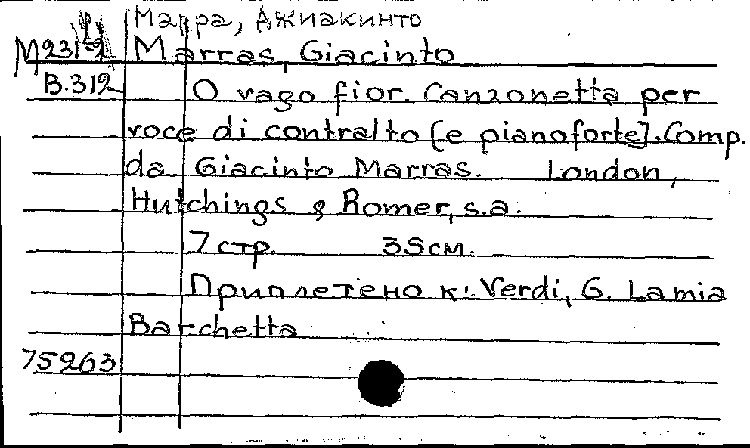 Марра, Джиакинто
М23 Marras, Giacinto
B.312 O vago fior. Canzonetta per
voce di contralto [e pianoforte]. Comp.
da Giacinto Marras. London,
Hutchings & Romer, s.a.
7 стр. 35 см.
Приплетено к: Verdi, G. La mia
Barchetta
75263